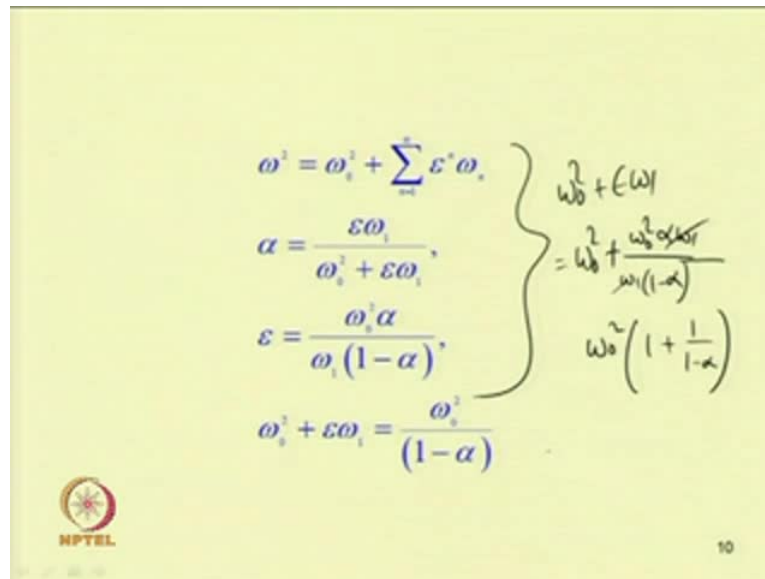 ω² = ω₀² + Σ εⁿ ωₙ
n=1
α = εω₁ / (ω₀² + εω₁),
ε = ω₀²α / (ω₁(1 − α)),
ω₀² + εω₁ = ω₀² / (1 − α)
ω₀² + εω₁
= ω₀² + ω₀²αω₁ / (ω₁(1−α))
ω₀² (1 + 1/(1−α))
NPTEL
10